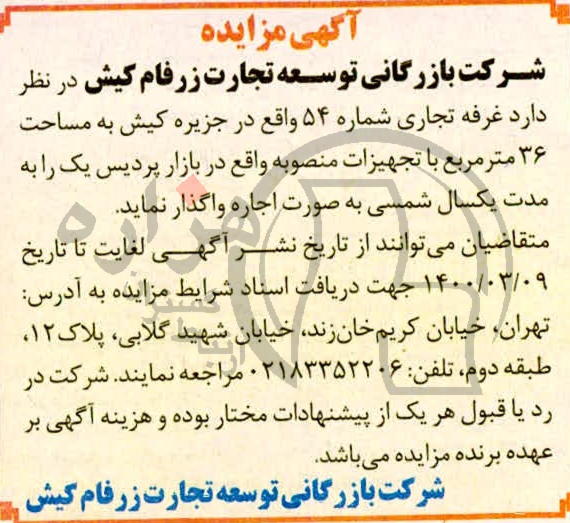 آگهی مزایده
شرکت بازرگانی توسعه تجارت زرفام کیش در نظر
دارد غرفه تجاری شماره ۵۴ واقع در جزیره کیش به مساحت
۳۶ مترمربع با تجهیزات منصوبه واقع در بازار پردیس یک را به
مدت یکسال شمسی به صورت اجاره واگذار نماید.
متقاضیان می‌توانند از تاریخ نشر آگهی لغایت تا تاریخ
۱۴۰۰/۰۳/۰۹ جهت دریافت اسناد شرایط مزایده به آدرس:
تهران، خیابان کریم‌خان‌زند، خیابان شهید گلابی، پلاک ۱۲،
طبقه دوم، تلفن: ۰۲۱۸۳۳۵۲۲۰۶ مراجعه نمایند. شرکت در
رد یا قبول هر یک از پیشنهادات مختار بوده و هزینه آگهی بر
عهده برنده مزایده می‌باشد.
شرکت بازرگانی توسعه تجارت زرفام کیش
هزاره